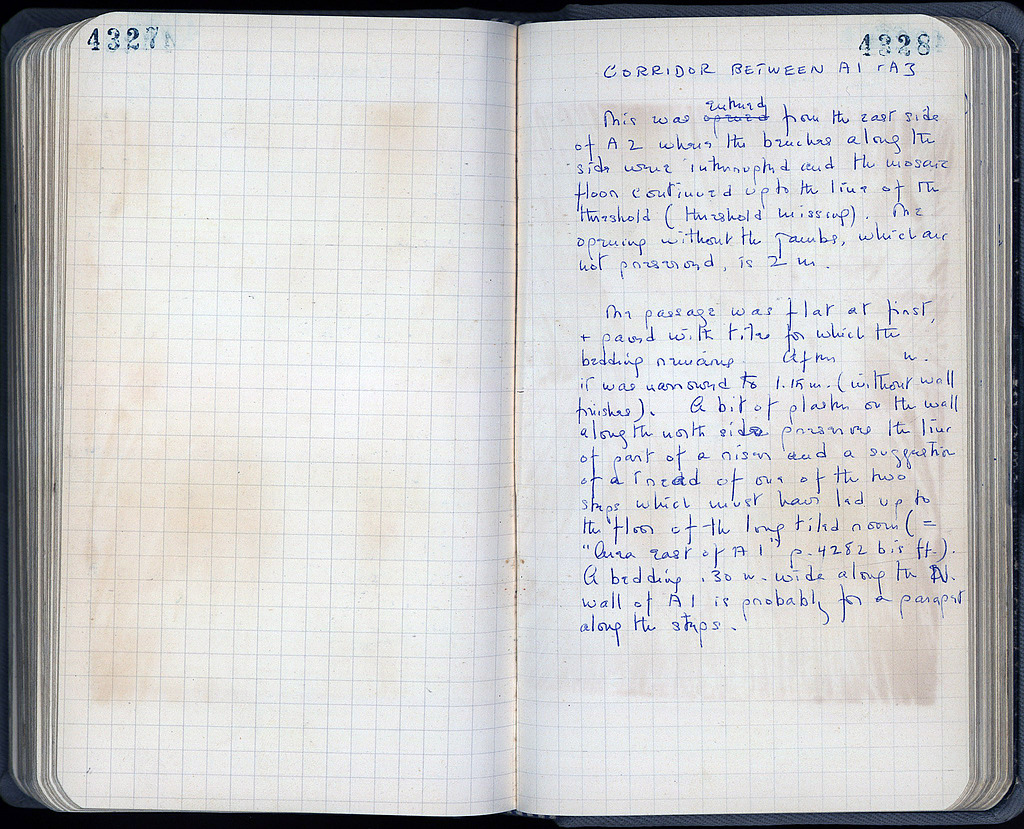 4327
4328
CORRIDOR BETWEEN A1 + A3
entered
This was opened from the east side
of A2 where the benches along the
side were interrupted and the mosaic
floor continued up to the line of the
threshold (threshold missing). The
opening without the jambs, which are
not preserved, is 2 m.
The passage was flat at first,
+ paved with tiles for which the
bedding remains. After m.
it was narrowed to 1.15 m. (without wall
finishes). A bit of plaster on the wall
along the north side preserves the line
of part of a riser and a suggestion
of a tread of one of the two
steps which must have led up to
the floor of the long tiled room (=
"Area east of A1" p. 4282 bis ff.).
A bedding .30 m. wide along the N.
wall of A1 is probably for a parapet
along the steps.